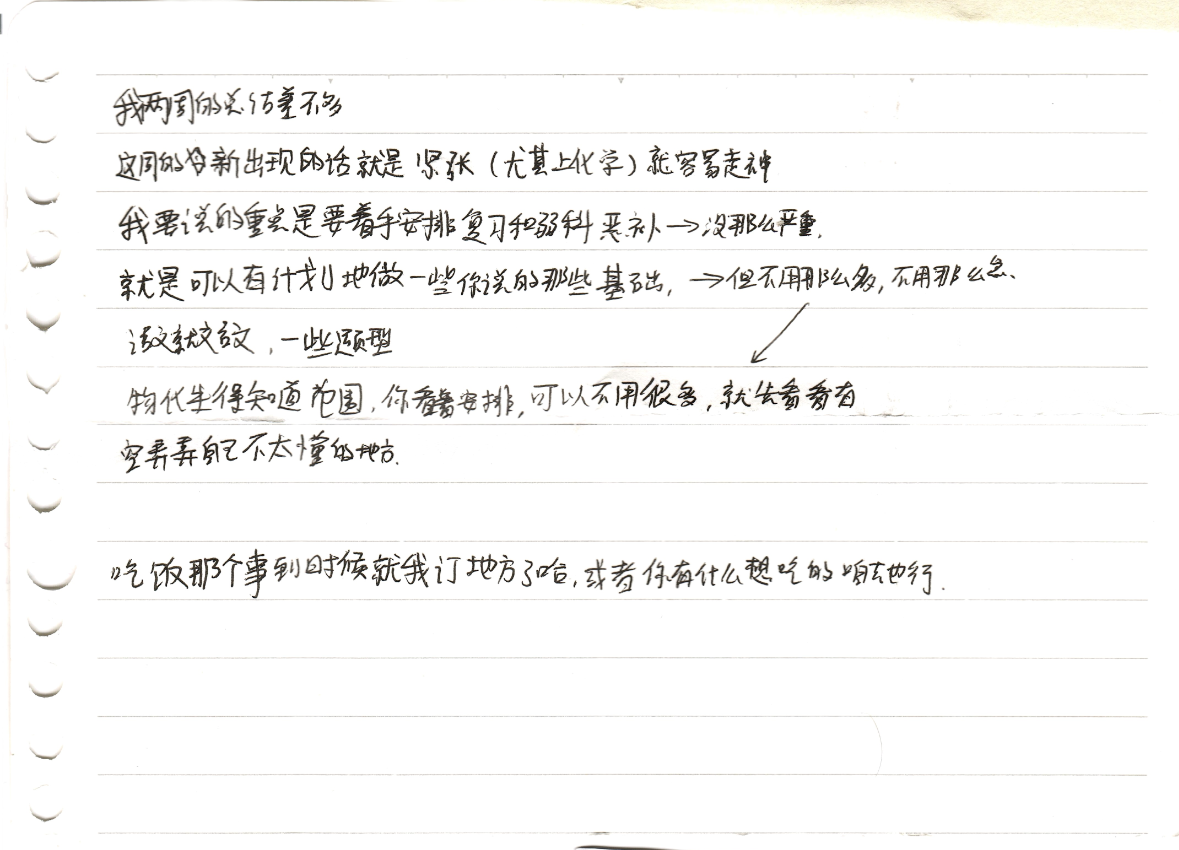 我两周的总结差不多
这周的新出现的话就是紧张（尤其上化学）就容易走神
我要说的重点是要着手安排复习和弱科恶补→没那么严重.
就是可以有计划地做一些你说的那些基础,→但不用那么多,不用那么急、
语文就文言文,一些题型
物化生得知道范围,你看着安排,可以不用很多,就去看看有
空弄弄自己不太懂的地方.
吃饭那个事到时候就我订地方了哈,或者你有什么想吃的咱去也行.